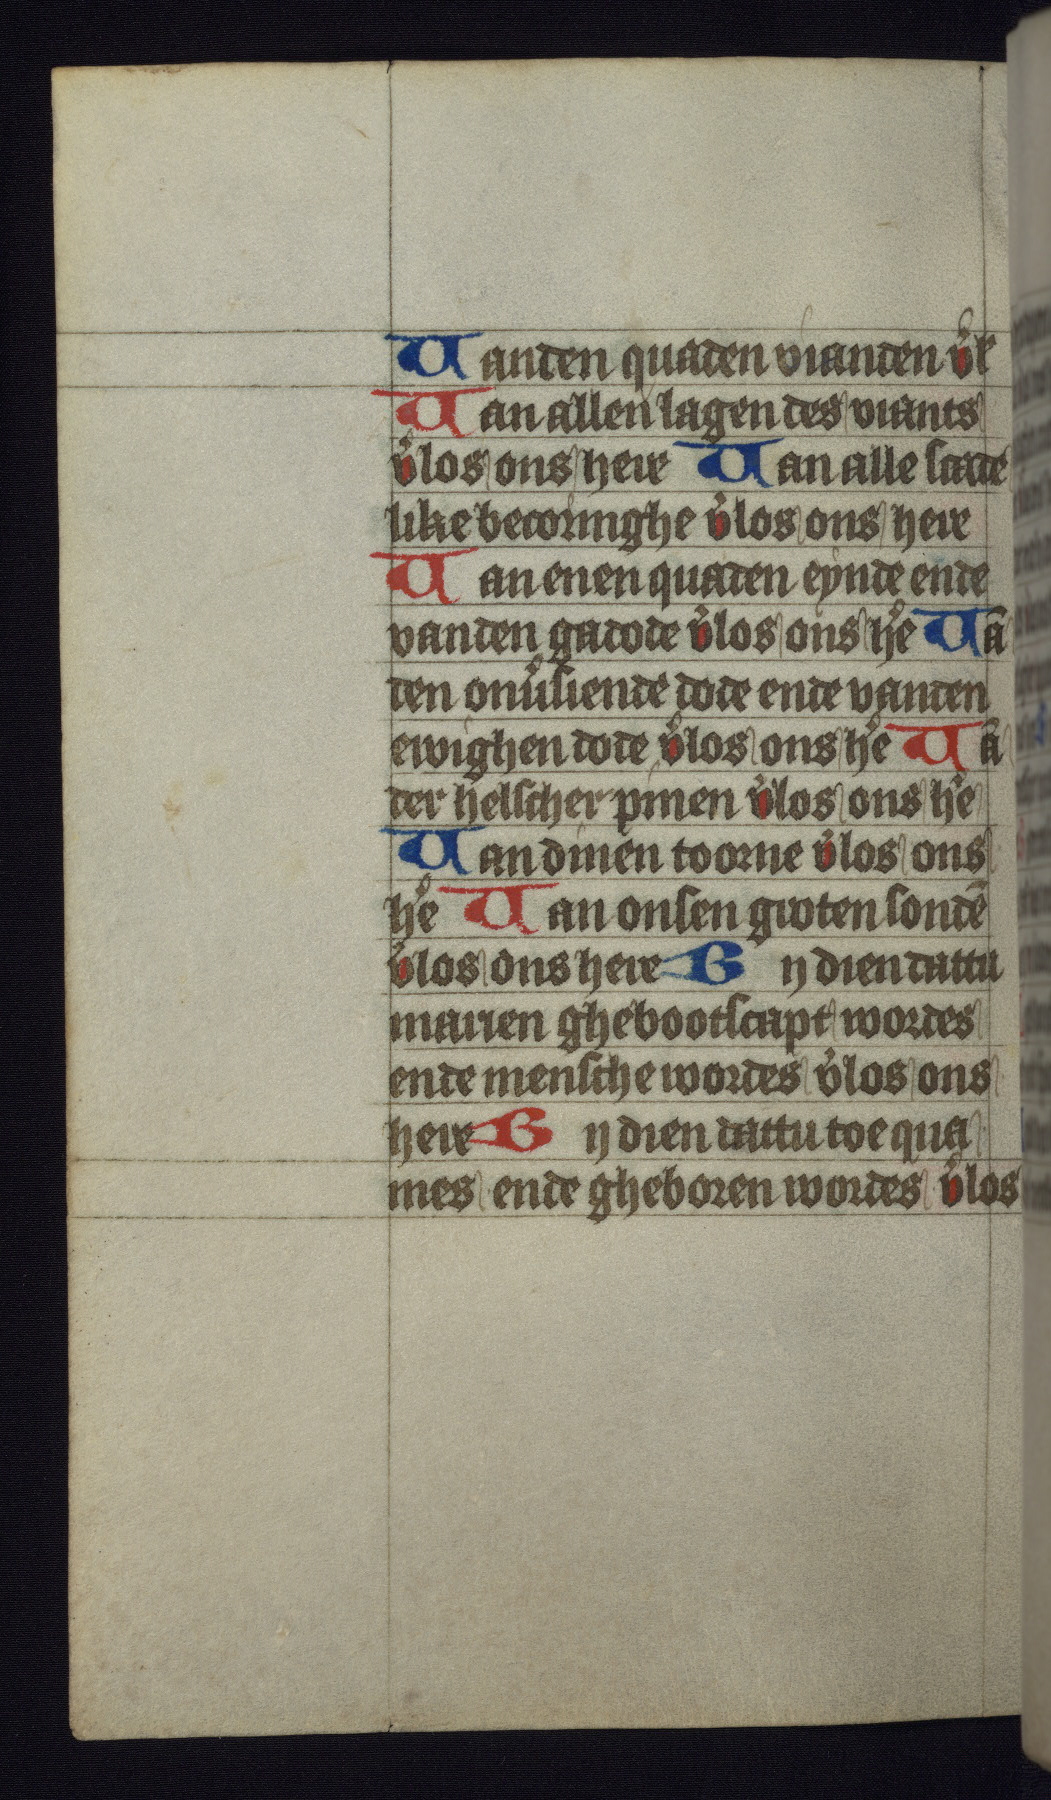 Vanden quaden vianden v̓l
Van allen lagen des viants
v̓los ons here Van alle scade
like becoringhe v̓los ons here
Van enen quaden eynde ende
vanden gadode v̓los ons h̓e Vā
den onv̓siende dode ende vanden
ewighen dode v̓los ons h̓e Vā
der helscher pinen v̓los ons h̓e
Van dinen toorne v̓los ons
h̓e Van onsen groten sondē
v̓los ons here By dien dattu
marien ghebootscapt wordes
ende mensche wordes v̓los ons
here By dien dattu toe qua
mes ende gheboren wordes v̓los